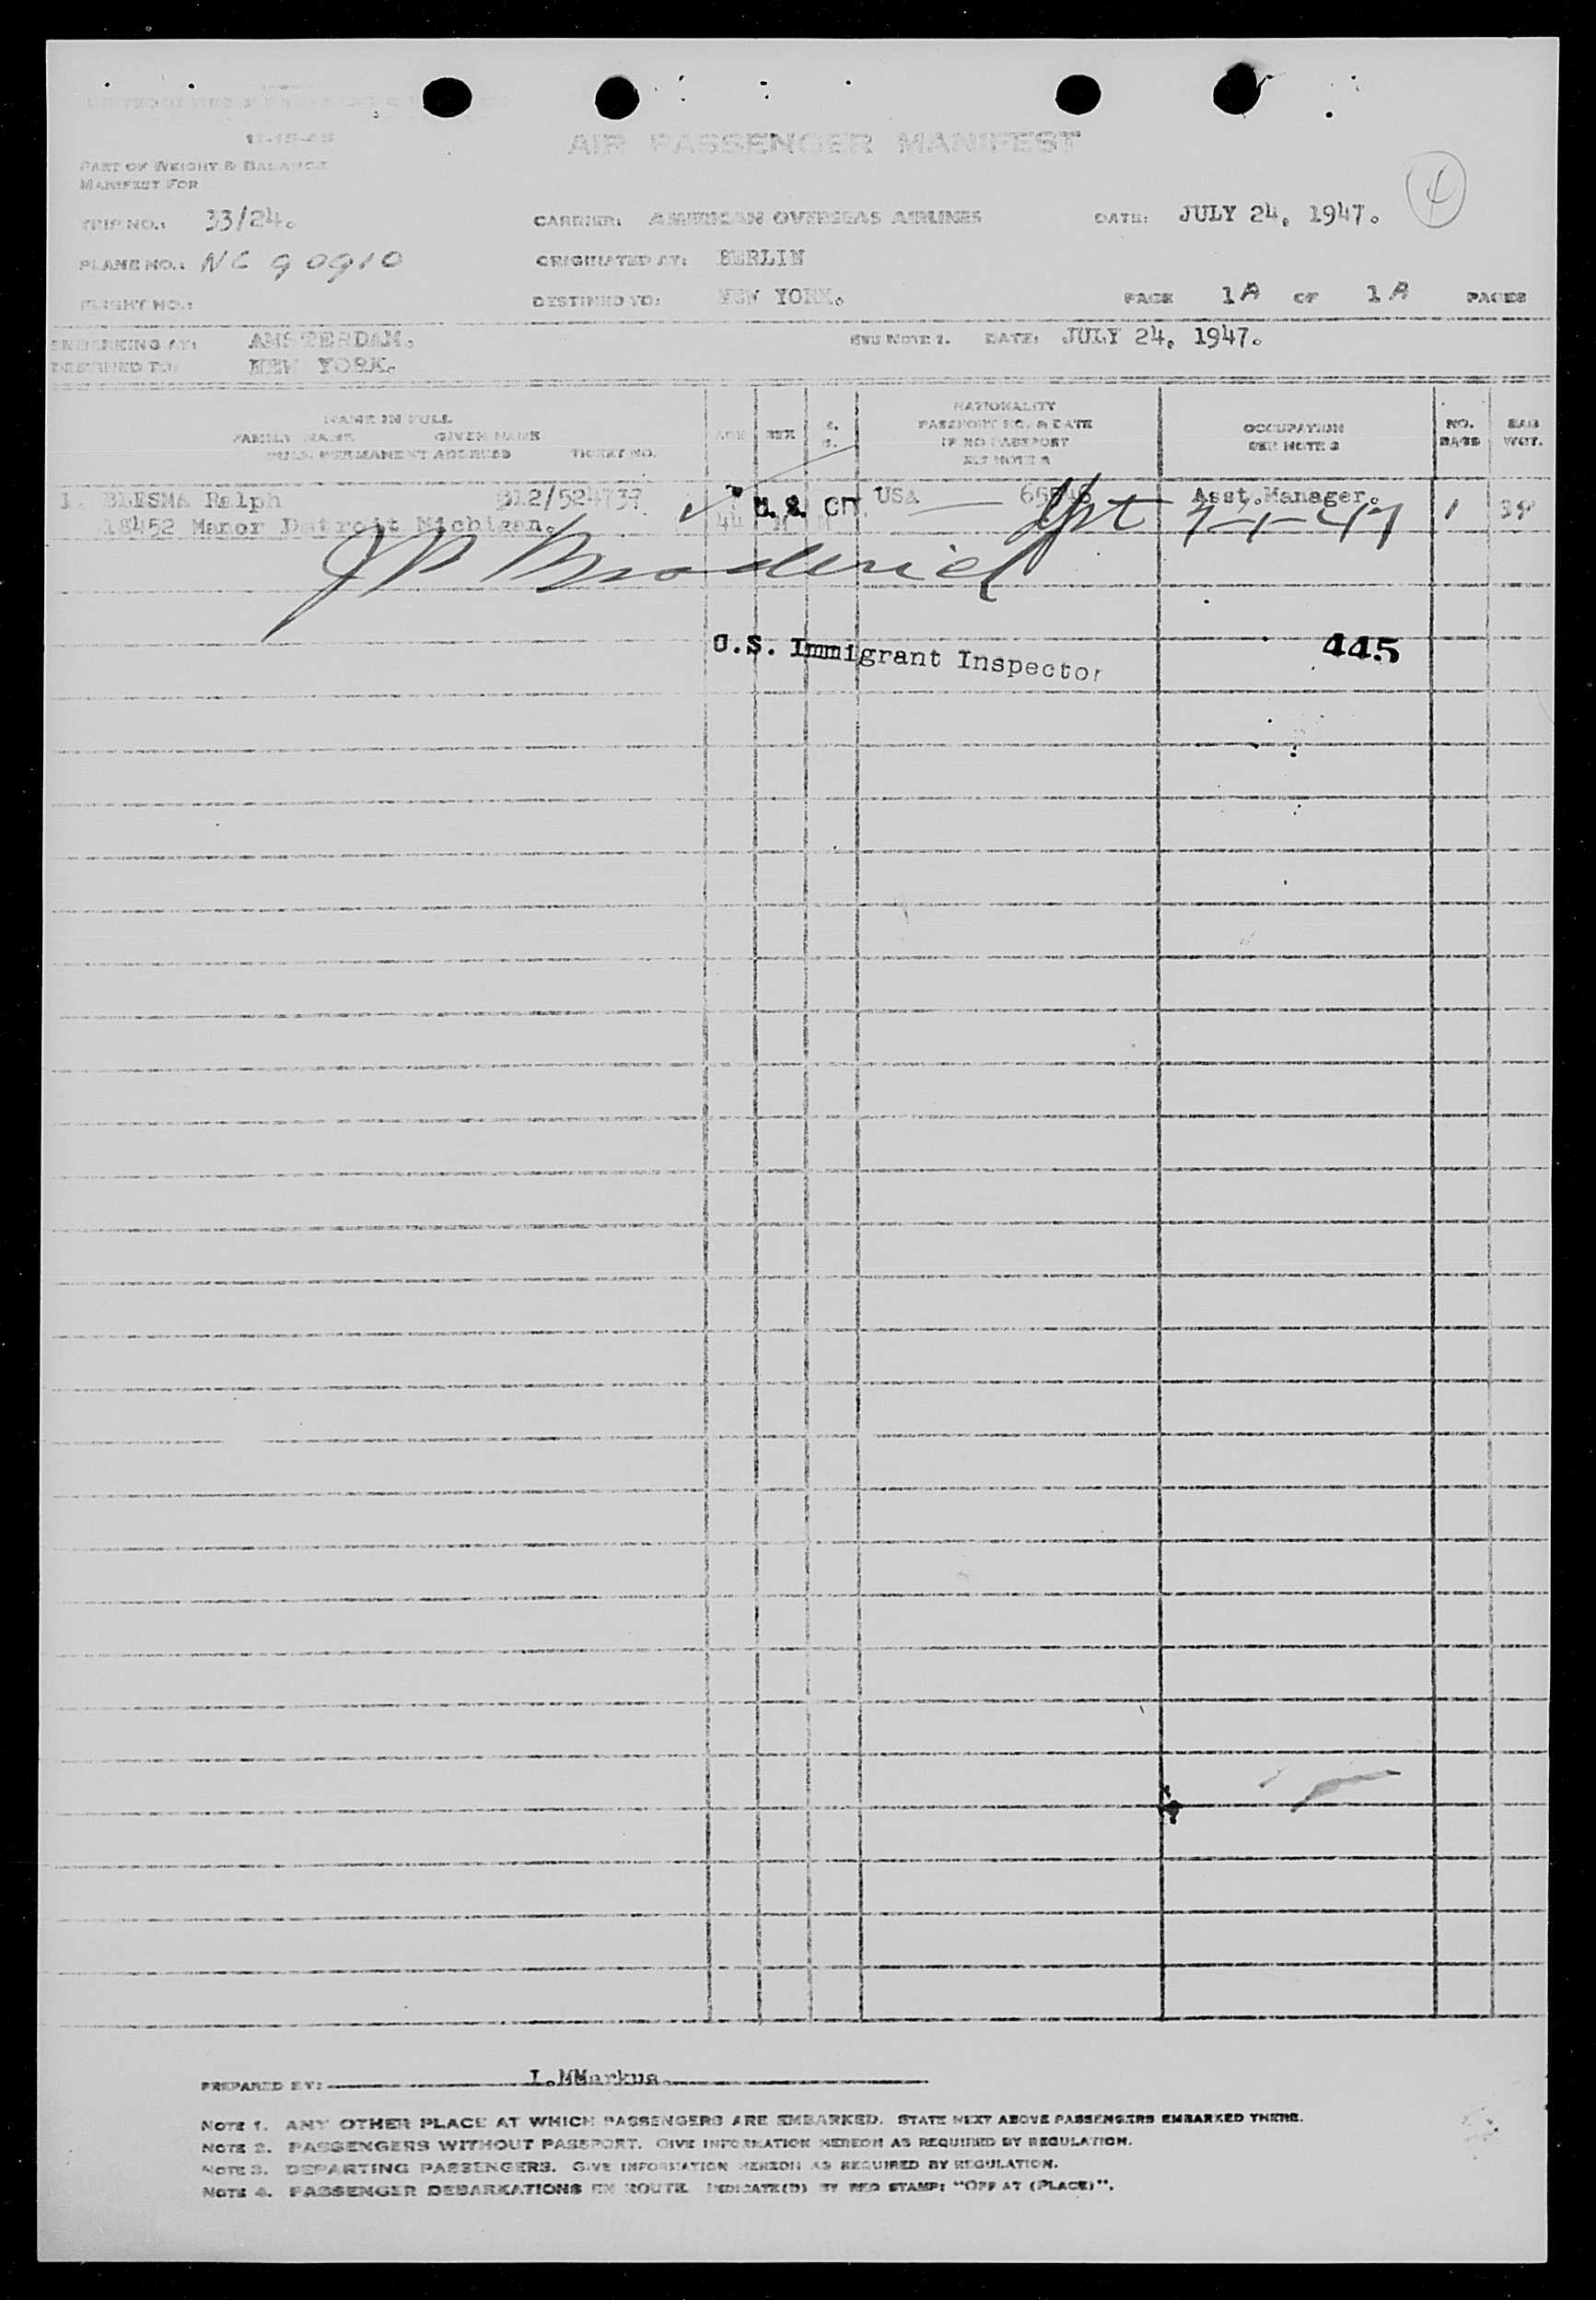 11-15-45
AIR PASSENGER MANIFEST
PART OF WEIGHT & BALANCE
MANIFEST FOR
TRIP NO.: 33/24. CARRIER: AMERICAN OVERSEAS AIRLINES DATE: JULY 24, 1947. 4
PLANE NO.: NC 90910 ORIGINATED AT: BERLIN
FLIGHT NO.: DESTINED TO: NEW YORK. PAGE 1A OF 1A PAGES
EMBARKING AT: AMSTERDAM. SEE NOTE 1. DATE: JULY 24, 1947.
DESTINED TO: NEW YORK.
NAME IN FULL
FAMILY NAME GIVEN NAME
FULL PERMANENT ADDRESS TICKET NO.
AGE SEX
NATIONALITY
PASSPORT NO. & DATE
IF NO PASSPORT
SEE NOTE 2
OCCUPATION
SEE NOTE 3
NO.
BAGS
BAG
WGT.
1. BLESMA Ralph 912/524737 U.S. CIT. USA Asst.Manager. 1
18452 Manor Detroit Michigan. 44 M M
J P Broderick
U.S. Immigrant Inspector 445
PREPARED BY: L.MMarkus
NOTE 1. ANY OTHER PLACE AT WHICH PASSENGERS ARE EMBARKED. STATE NEXT ABOVE PASSENGERS EMBARKED THERE.
NOTE 2. PASSENGERS WITHOUT PASSPORT. GIVE INFORMATION HEREON AS REQUIRED BY REGULATION.
NOTE 3. DEPARTING PASSENGERS. GIVE INFORMATION HEREON AS REQUIRED BY REGULATION.
NOTE 4. PASSENGER DEBARKATIONS EN ROUTE INDICATE(D) BY RED STAMP: "OFF AT (PLACE)".